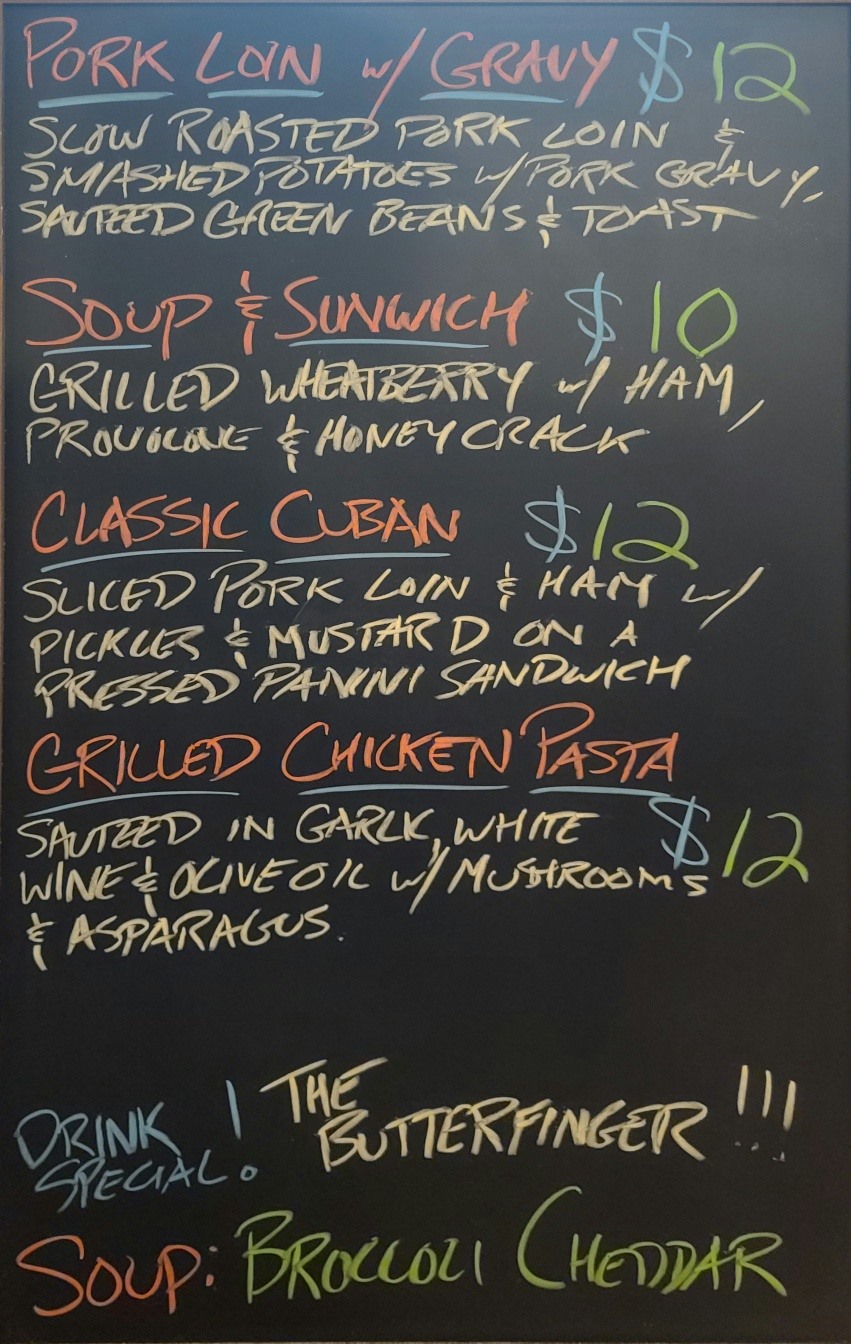 PORK LOIN w/ GRAVY $12
SLOW ROASTED PORK LOIN &
SMASHED POTATOES w/ PORK GRAVY,
SAUTEED GREEN BEANS & TOAST
SOUP & SUNWICH $10
GRILLED WHEATBERRY w/ HAM,
PROVOLONE & HONEY CRACK
CLASSIC CUBAN $12
SLICED PORK LOIN & HAM w/
PICKLES & MUSTARD ON A
PRESSED PANINI SANDWICH
GRILLED CHICKEN PASTA
SAUTEED IN GARLIC, WHITE $12
WINE & OLIVE OIL w/ MUSHROOMS
& ASPARAGUS.
DRINK SPECIAL! THE BUTTERFINGER!!!
SOUP: BROCCOLI CHEDDAR